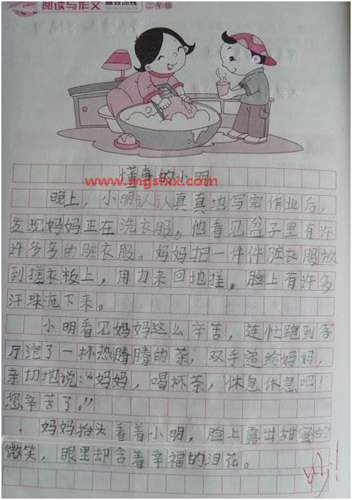 阅读与作文
二年级
懂事的小明
www.mgslxx.com
晚上，小明认认真真地写完作业后，
发现妈妈正在洗衣服。他看见盆子里有许
许多多的脏衣服。妈妈把一件件脏衣服放
到搓衣板上，用力来回地搓。脸上有许多
汗珠流下来。
小明看见妈妈这么辛苦，连忙跑到客
厅泡了一杯热腾腾的茶，双手递给妈妈，
亲切地说："妈妈，喝杯茶，休息休息吧！
您辛苦了。"
妈妈抬头看着小明，脸上露出甜蜜的
微笑，眼里却含着幸福的泪花。